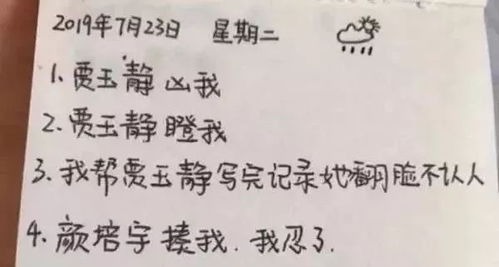 2019年7月23日 星期二
1. 贾玉静凶我
2. 贾玉静瞪我
3. 我帮贾玉静写完记录她翻脸不认人
4. 颜培宇揍我. 我忍了.